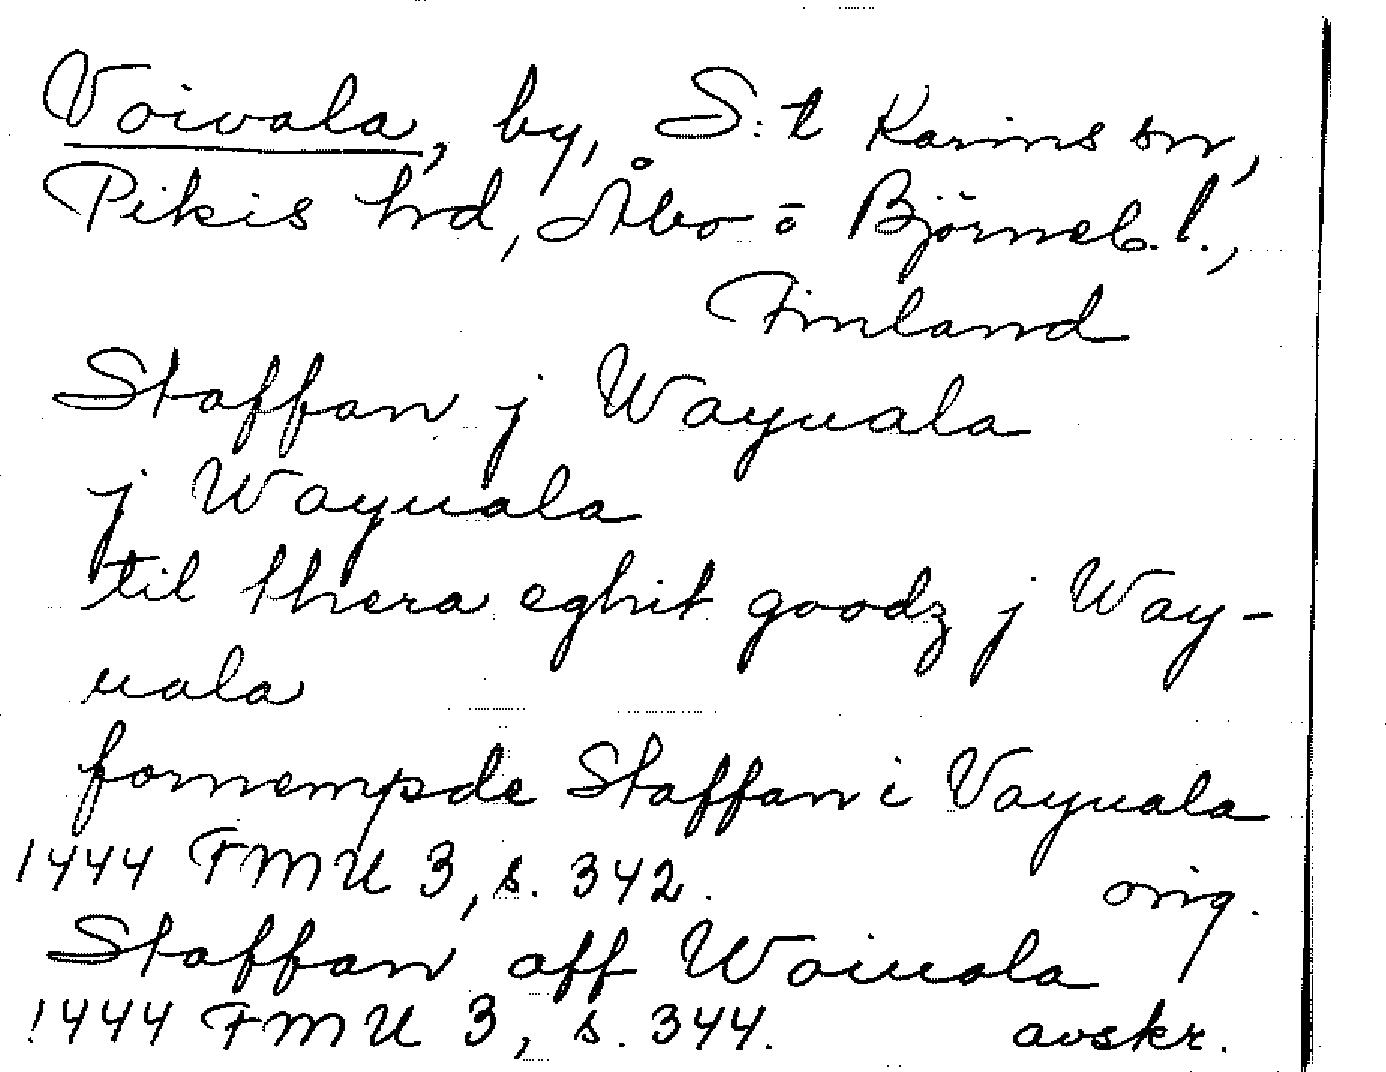 Voivala, by, S:t Karins sn,
Pikis hrd, Åbo o Björneb. l.,
Finland
Staffan j Wayuala
j Wayuala
til thera eghit goodz j Way-
uala
fornempde Staffan i Vayuala
1444 FMU 3, s. 342. orig.
Staffan aff Woiuala
1444 FMU 3, s. 344. avskr.